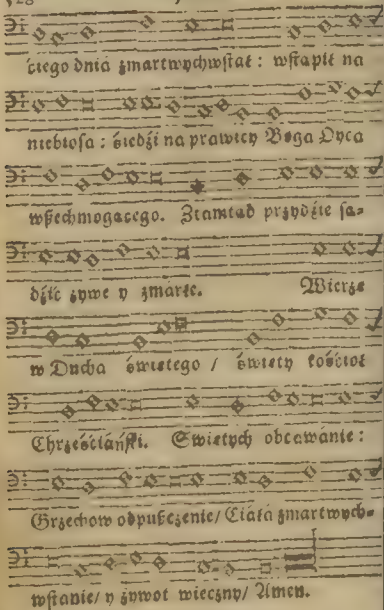 ciego dnia zmartwychwstał : wstąpił na
niebiosa : śiedźi na prawicy Boga Oyca
wßechmogącego. Ztamtąd przydźie są-
dźić żywe y zmarłe. Wierzę
w Ducha świętego / święty kośćioł
Chrześćiáński. Swiętych obcowánie :
Grzechow odpußczenie/ Ciáłá zmartwych-
wstanie/ y żywot wieczny/ Amen.